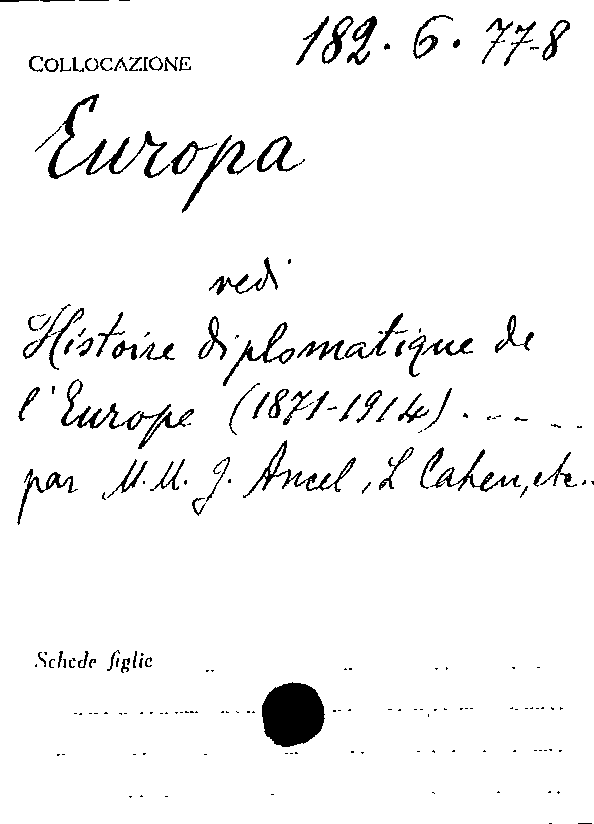 COLLOCAZIONE 182. 6. 77-8
Europa
vedi
Histoire diplomatique de
l'Europe (1871-1914) . - - - -
par M.M. J. Ancel, L Cahen, etc..
Schede figlie